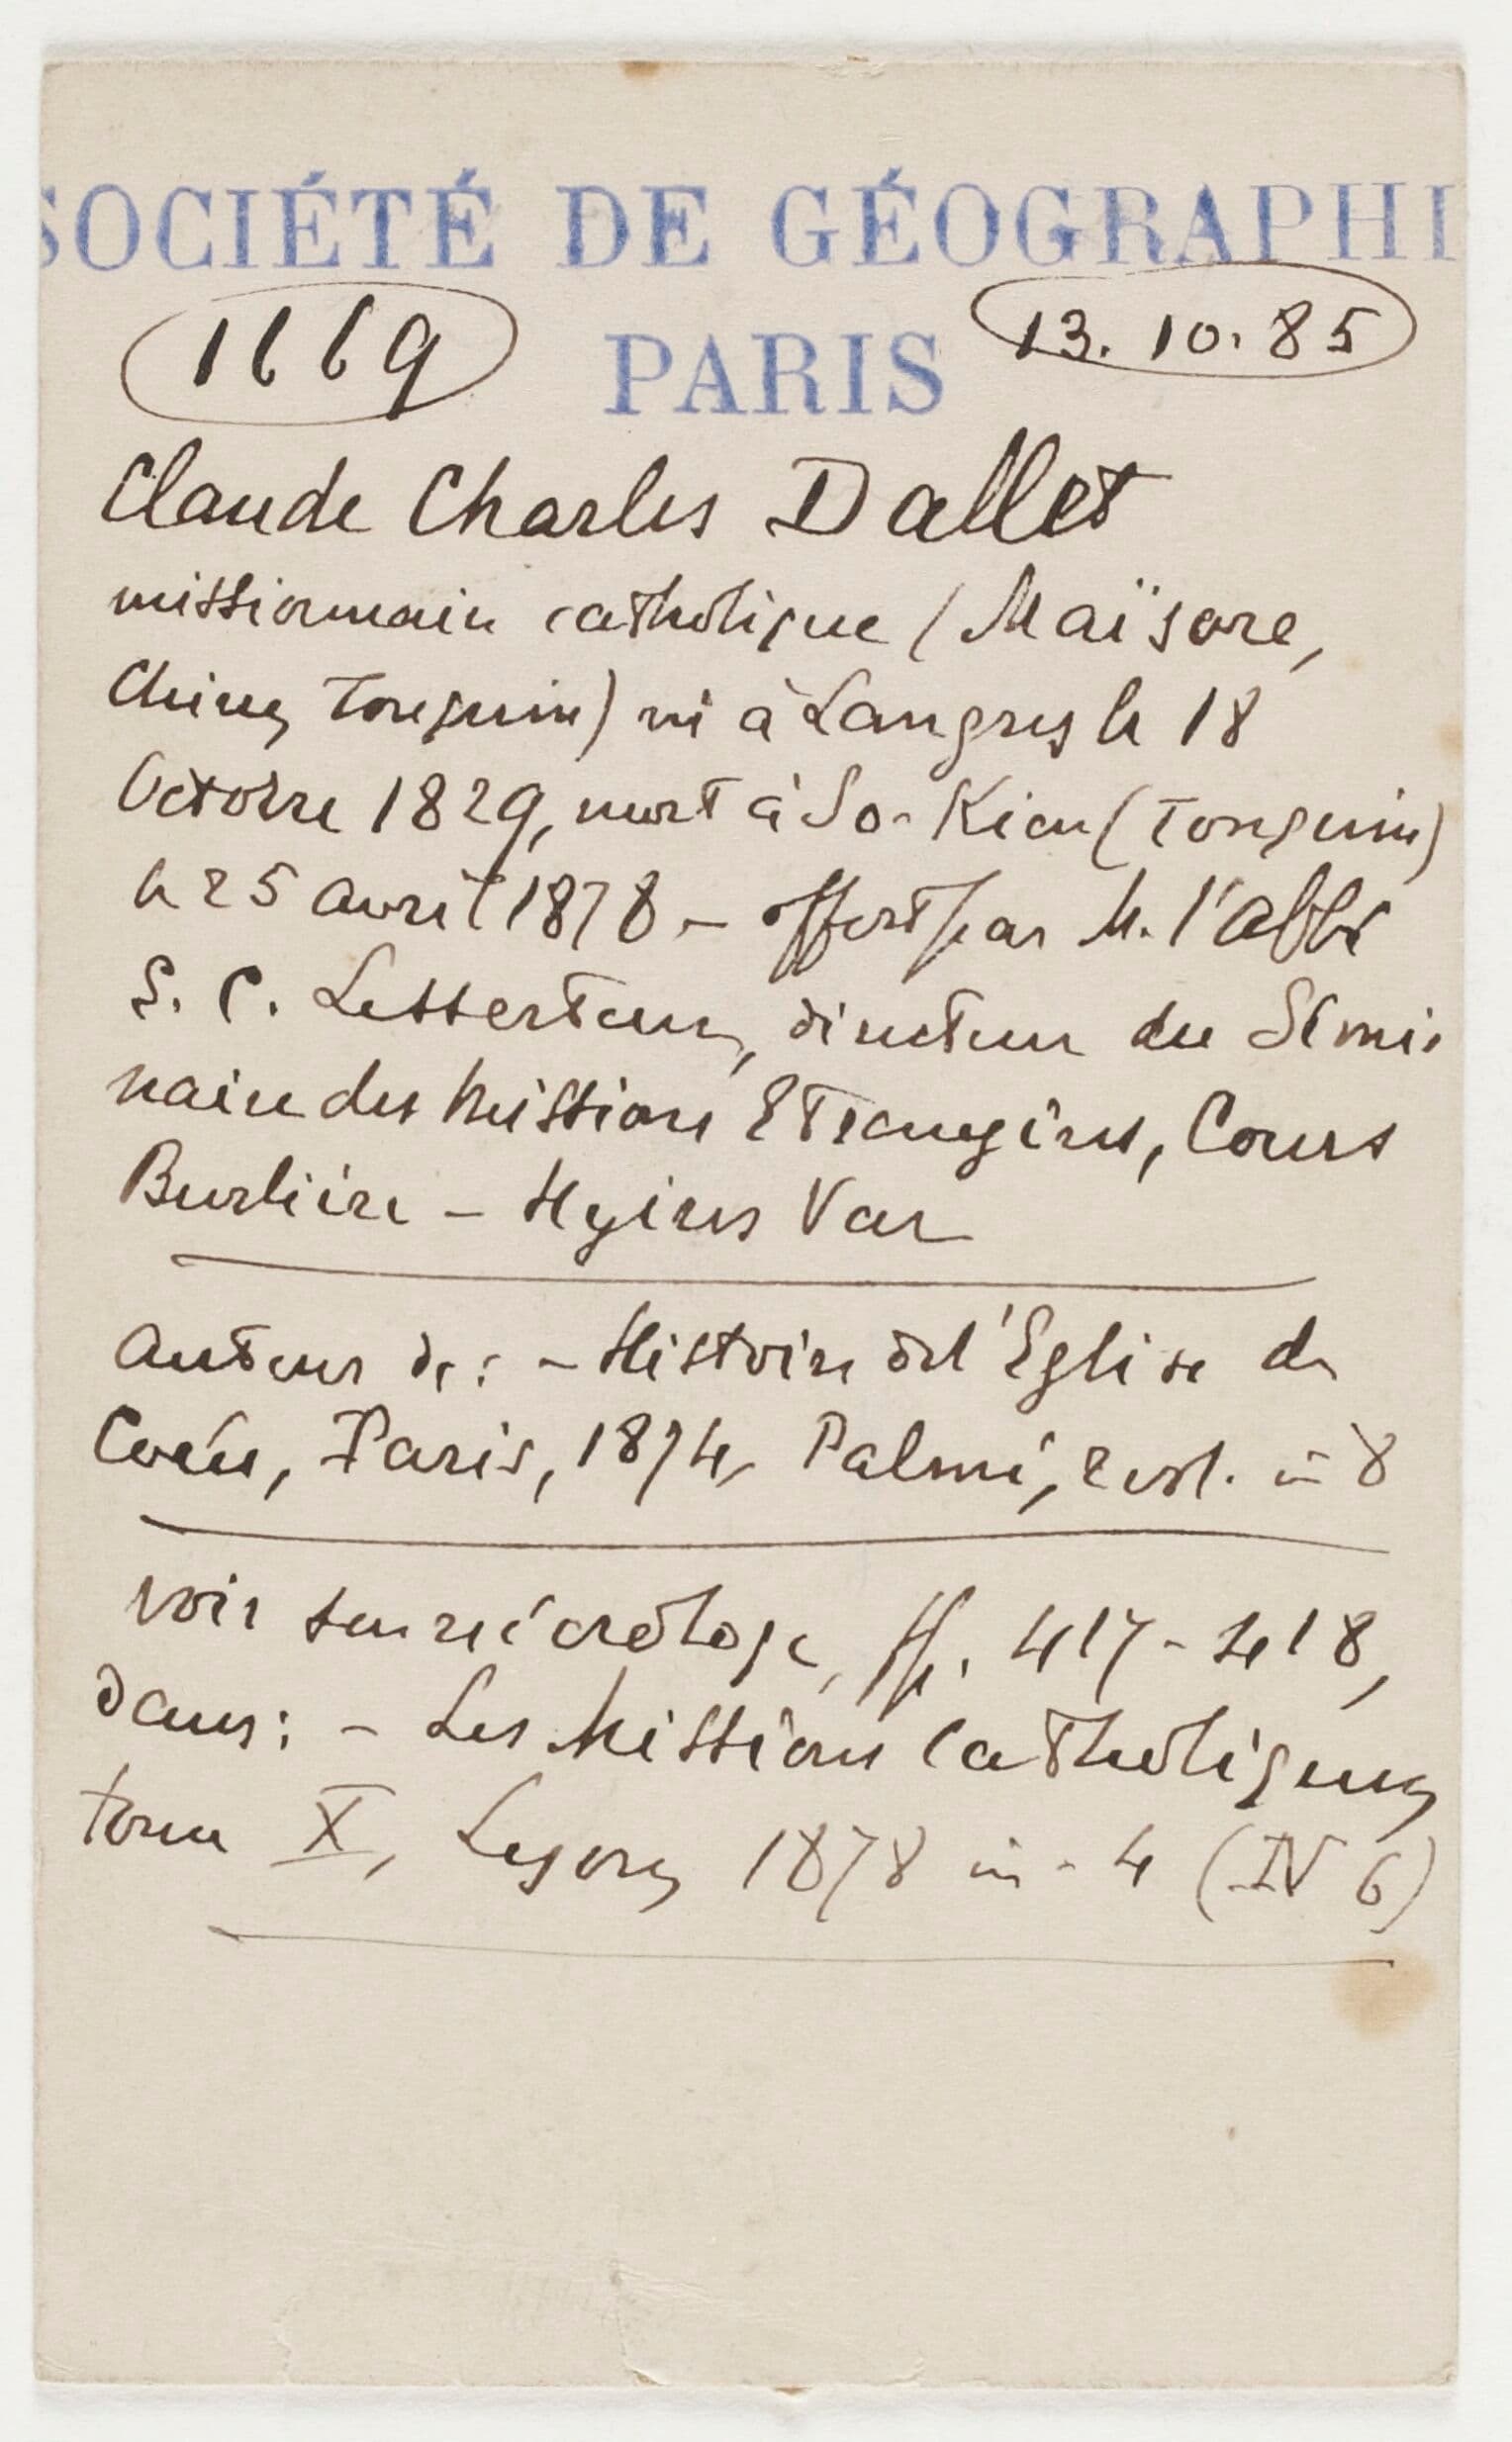 SOCIÉTÉ DE GÉOGRAPHI
PARIS
1169
13.10.85
Claude Charles Dallet
missionnaire catholique (Maïsore,
Chine, Tonquin) né à Langres le 18
Octobre 1829, mort à So-Kien (Tonquin)
le 25 avril 1878 - offert par M. l'abbé
E. C. Lesserteur, directeur du Sémi-
naire des Missions Etrangères, Cours
Burlière - Hyères Var
auteur de: - Histoire de l'Eglise de
Corée, Paris, 1874, Palmé, 2 vol. in 8
voir son nécrologe, pp. 417-418,
dans: - Les Missions Catholiques,
tome X, Lyon, 1878 in-4 (IV 6)